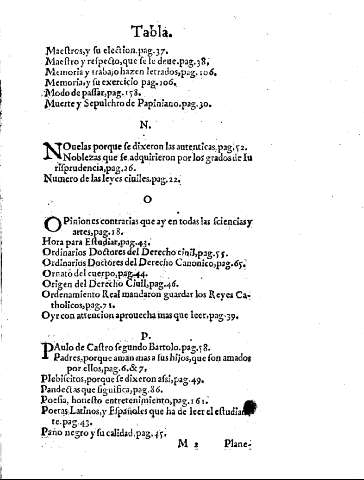 Tabla.
Maestros, y su election. pag. 37.
Maestro y respecto, que se le deue. pag. 38.
Memoria y trabajo hazen letrados, pag. 106.
Memoria, y su exercicio pag. 106.
Modo de passar, pag. 158.
Muerte y Sepulchro de Papiniano. pag. 30.
N.
NOuelas porque se dixeron las autenticas. pag. 52.
Noblezas que se adquirieron por los grados de Iu
risprudencia, pag. 26.
Numero de las leyes ciuiles. pag. 22.
O
OPiniones contrarias que ay en todas las sciencias y
artes, pag. 18.
Hora para Estudiar, pag. 43.
Ordinarios Doctores del Derecho ciuil, pag. 55.
Ordinarios Doctores del Derecho Canonico, pag. 65.
Ornato del cuerpo, pag. 44.
Origen del Derecho Ciuil, pag. 46.
Ordenamiento Real mandaron guardar los Reyes Ca-
tholicos, pag. 71.
Oyr con attencion aprouecha mas que leer. pag. 39.
P.
PAulo de Castro segundo Bartolo. pag. 58.
Padres, porque aman mas a sus hijos, que son amados
por ellos, pag. 6. & 7.
Plebiscitos, porque se dixeron assi, pag. 49.
Pandectas que significa, pag. 86.
Poesia, honesto entretenimiento, pag. 161.
Poetas Latinos, y Españoles que ha de leer el estudian
te. pag. 43.
Paño negro y su calidad. pag. 45.
M 2 Plane-